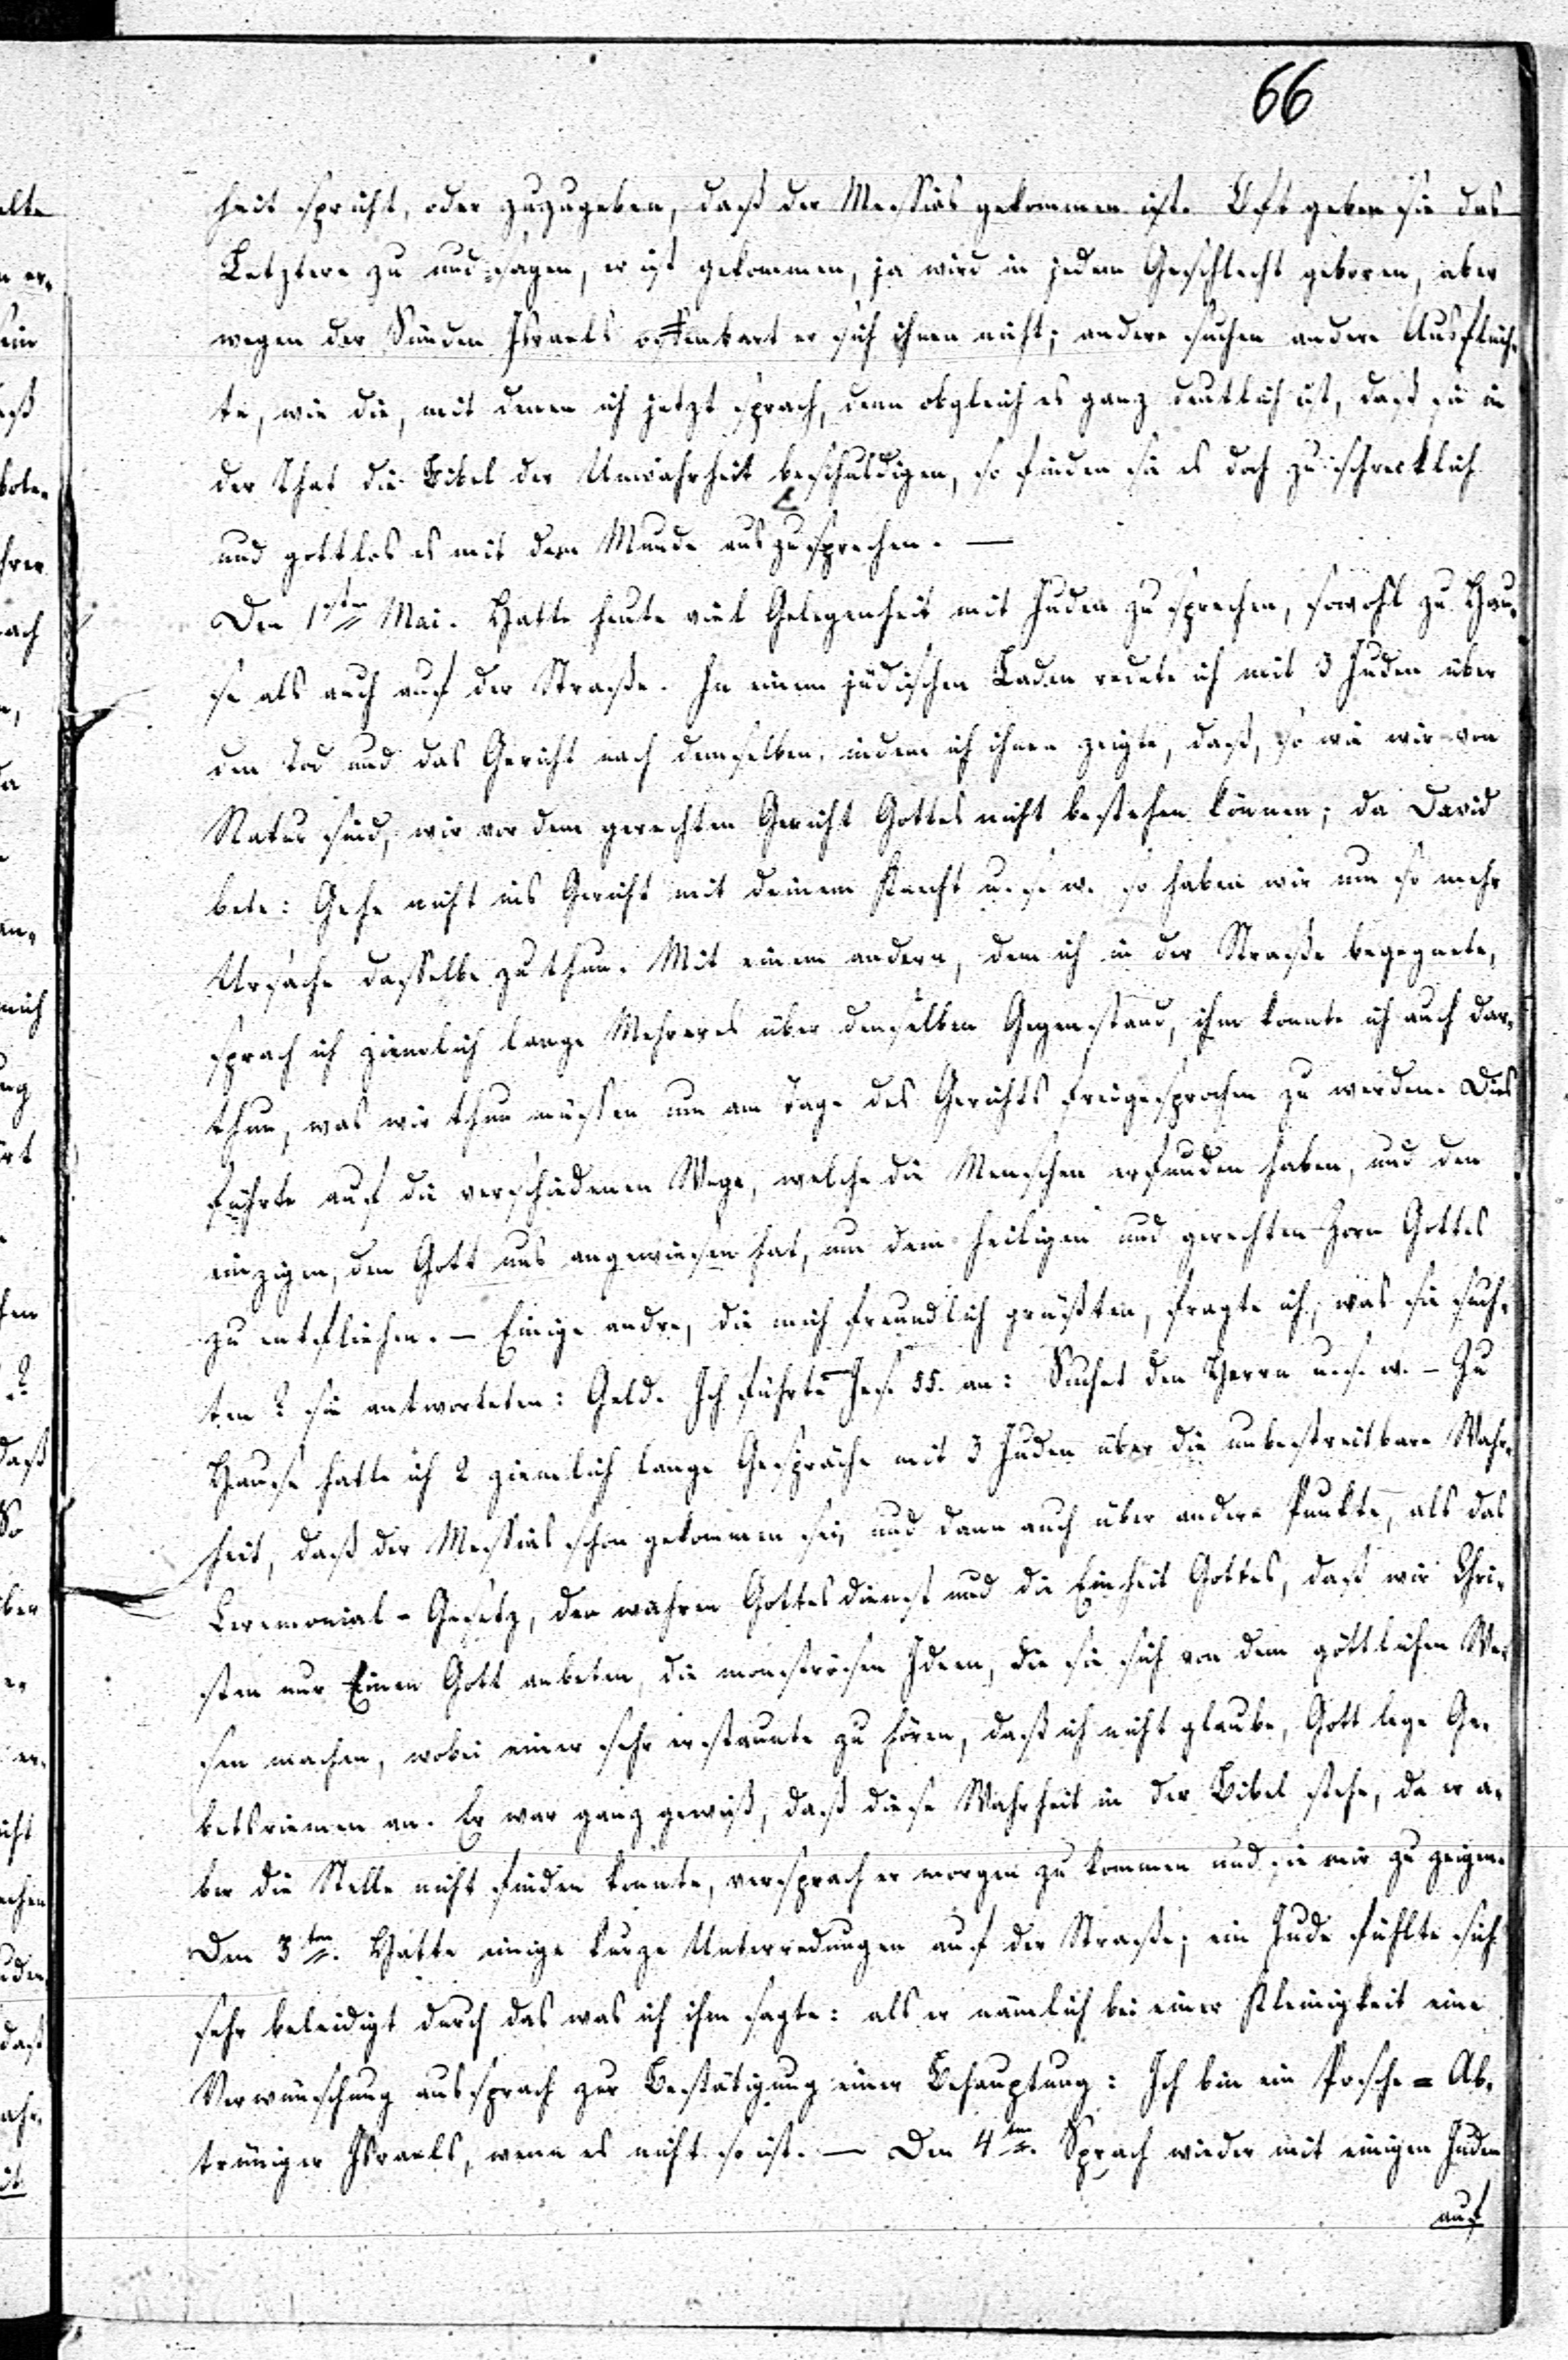 66
heit spricht, oder zuzugeben, daß der Messias gekommen ist. Oft geben sie das
Letztere zu und sagen, er ist gekommen, ja wird in jedem Geschlecht geboren, aber
wegen der Sünden Israels offenbart er sich ihnen nicht; andere suchen andere Ausflüch-
te, wie die, mit denen ich jetzt sprach, denn obgleich es ganz deutlich ist, daß sie in
der That die Bibel der Unwahrheit beschuldigen, so finden sie es doch zu schrecklich
und gottlos es mit dem Munde auszusprechen. —
Den 1sten Mai. Hatte heute viel Gelegenheit mit Juden zu sprechen, sowohl zu Hau-
se als auch auf der Straße. In einem jüdischen Laden redete ich mit 3 Juden über
den Tod und das Gericht nach demselben, indem ich ihnen zeigte, daß, so wie wir von
Natur sind, wir vor dem gerechten Gericht Gottes nicht bestehen können; da David
bete: Gehe nicht ins Gericht mit deinem Knecht u. s. w. so haben wir um so mehr
Ursache dasselbe zu thun. Mit einem andern, dem ich in der Straße begegnete,
sprach ich ziemlich lange Mehreres über denselben Gegenstand, ihm konnte ich auch dar-
thun, was wir thun müssen um am Tage des Gerichts freigesprochen zu werden. Dies
führte auf die verschiedenen Wege, welche die Menschen erfunden haben, und den
einzigen, den Gott uns angewiesen hat, um dem heiligen und gerechten Zorn Gottes
zu entfliehen. — Einige andre, die mich freundlich grüßten, fragte ich, was sie such-
ten? sie antworteten: Geld. Ich führte Jes. 55. an: Suchet den Herrn u. s. w. — Zu
Hause hatte ich 2 ziemlich lange Gespräche mit 3 Juden über die unbestreitbare Wahr-
heit, daß der Messias schon gekommen sei, und dann auch über andere Punkte, als das
Ceremonial-Gesetz, den wahren Gottesdienst und die Einheit Gottes, daß wir Chri-
sten nur Einen Gott anbeten, die monströsen Ideen, die sie sich von dem göttlichen We-
sen machen, wobei einer sehr erstaunte zu hören, daß ich nicht glaube, Gott lege Ge-
betsriemen an. Er war ganz gewiß, daß diese Wahrheit in der Bibel stehe, da er a-
ber die Stelle nicht finden konnte, versprach er morgen zu kommen und sie mir zu zeigen.
Den 3ten. Hatte einige kurze Unterredungen auf der Straße; ein Jude fühlte sich
sehr beleidigt durch das was ich ihm sagte: als er nämlich bei einer Kleinigkeit eine
Verwünschung aussprach zur Bestätigung einer Behauptung: Ich bin ein Posche = Ab-
trüniger Israels, wenn es nicht so ist. — Den 4ten. Sprach wieder mit einigen Juden
auf